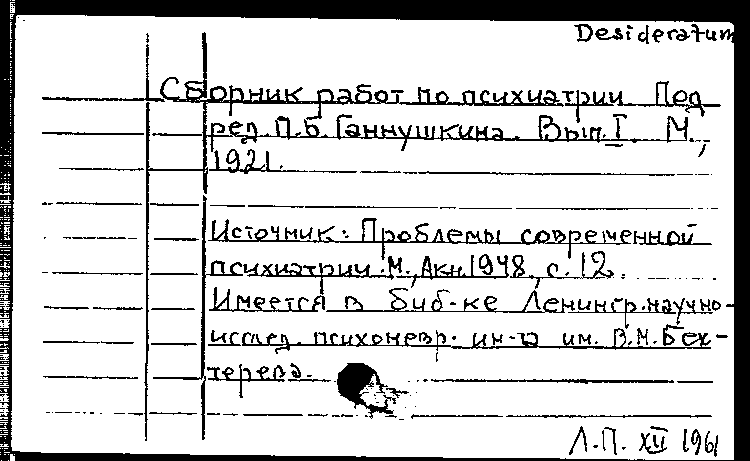 Desideratum
Сборник работ по психиатрии Под
ред. П.Б. Ганнушкина. Вып. I. М.,
1921.
Источник: Проблемы современной
психиатрии. М., Акн. 1948, с. 12.
Имеется в биб-ке Ленингр. научно-
исслед. психоневр. ин-та им. В.М. Бех-
терева.
Л.П. XII 1961